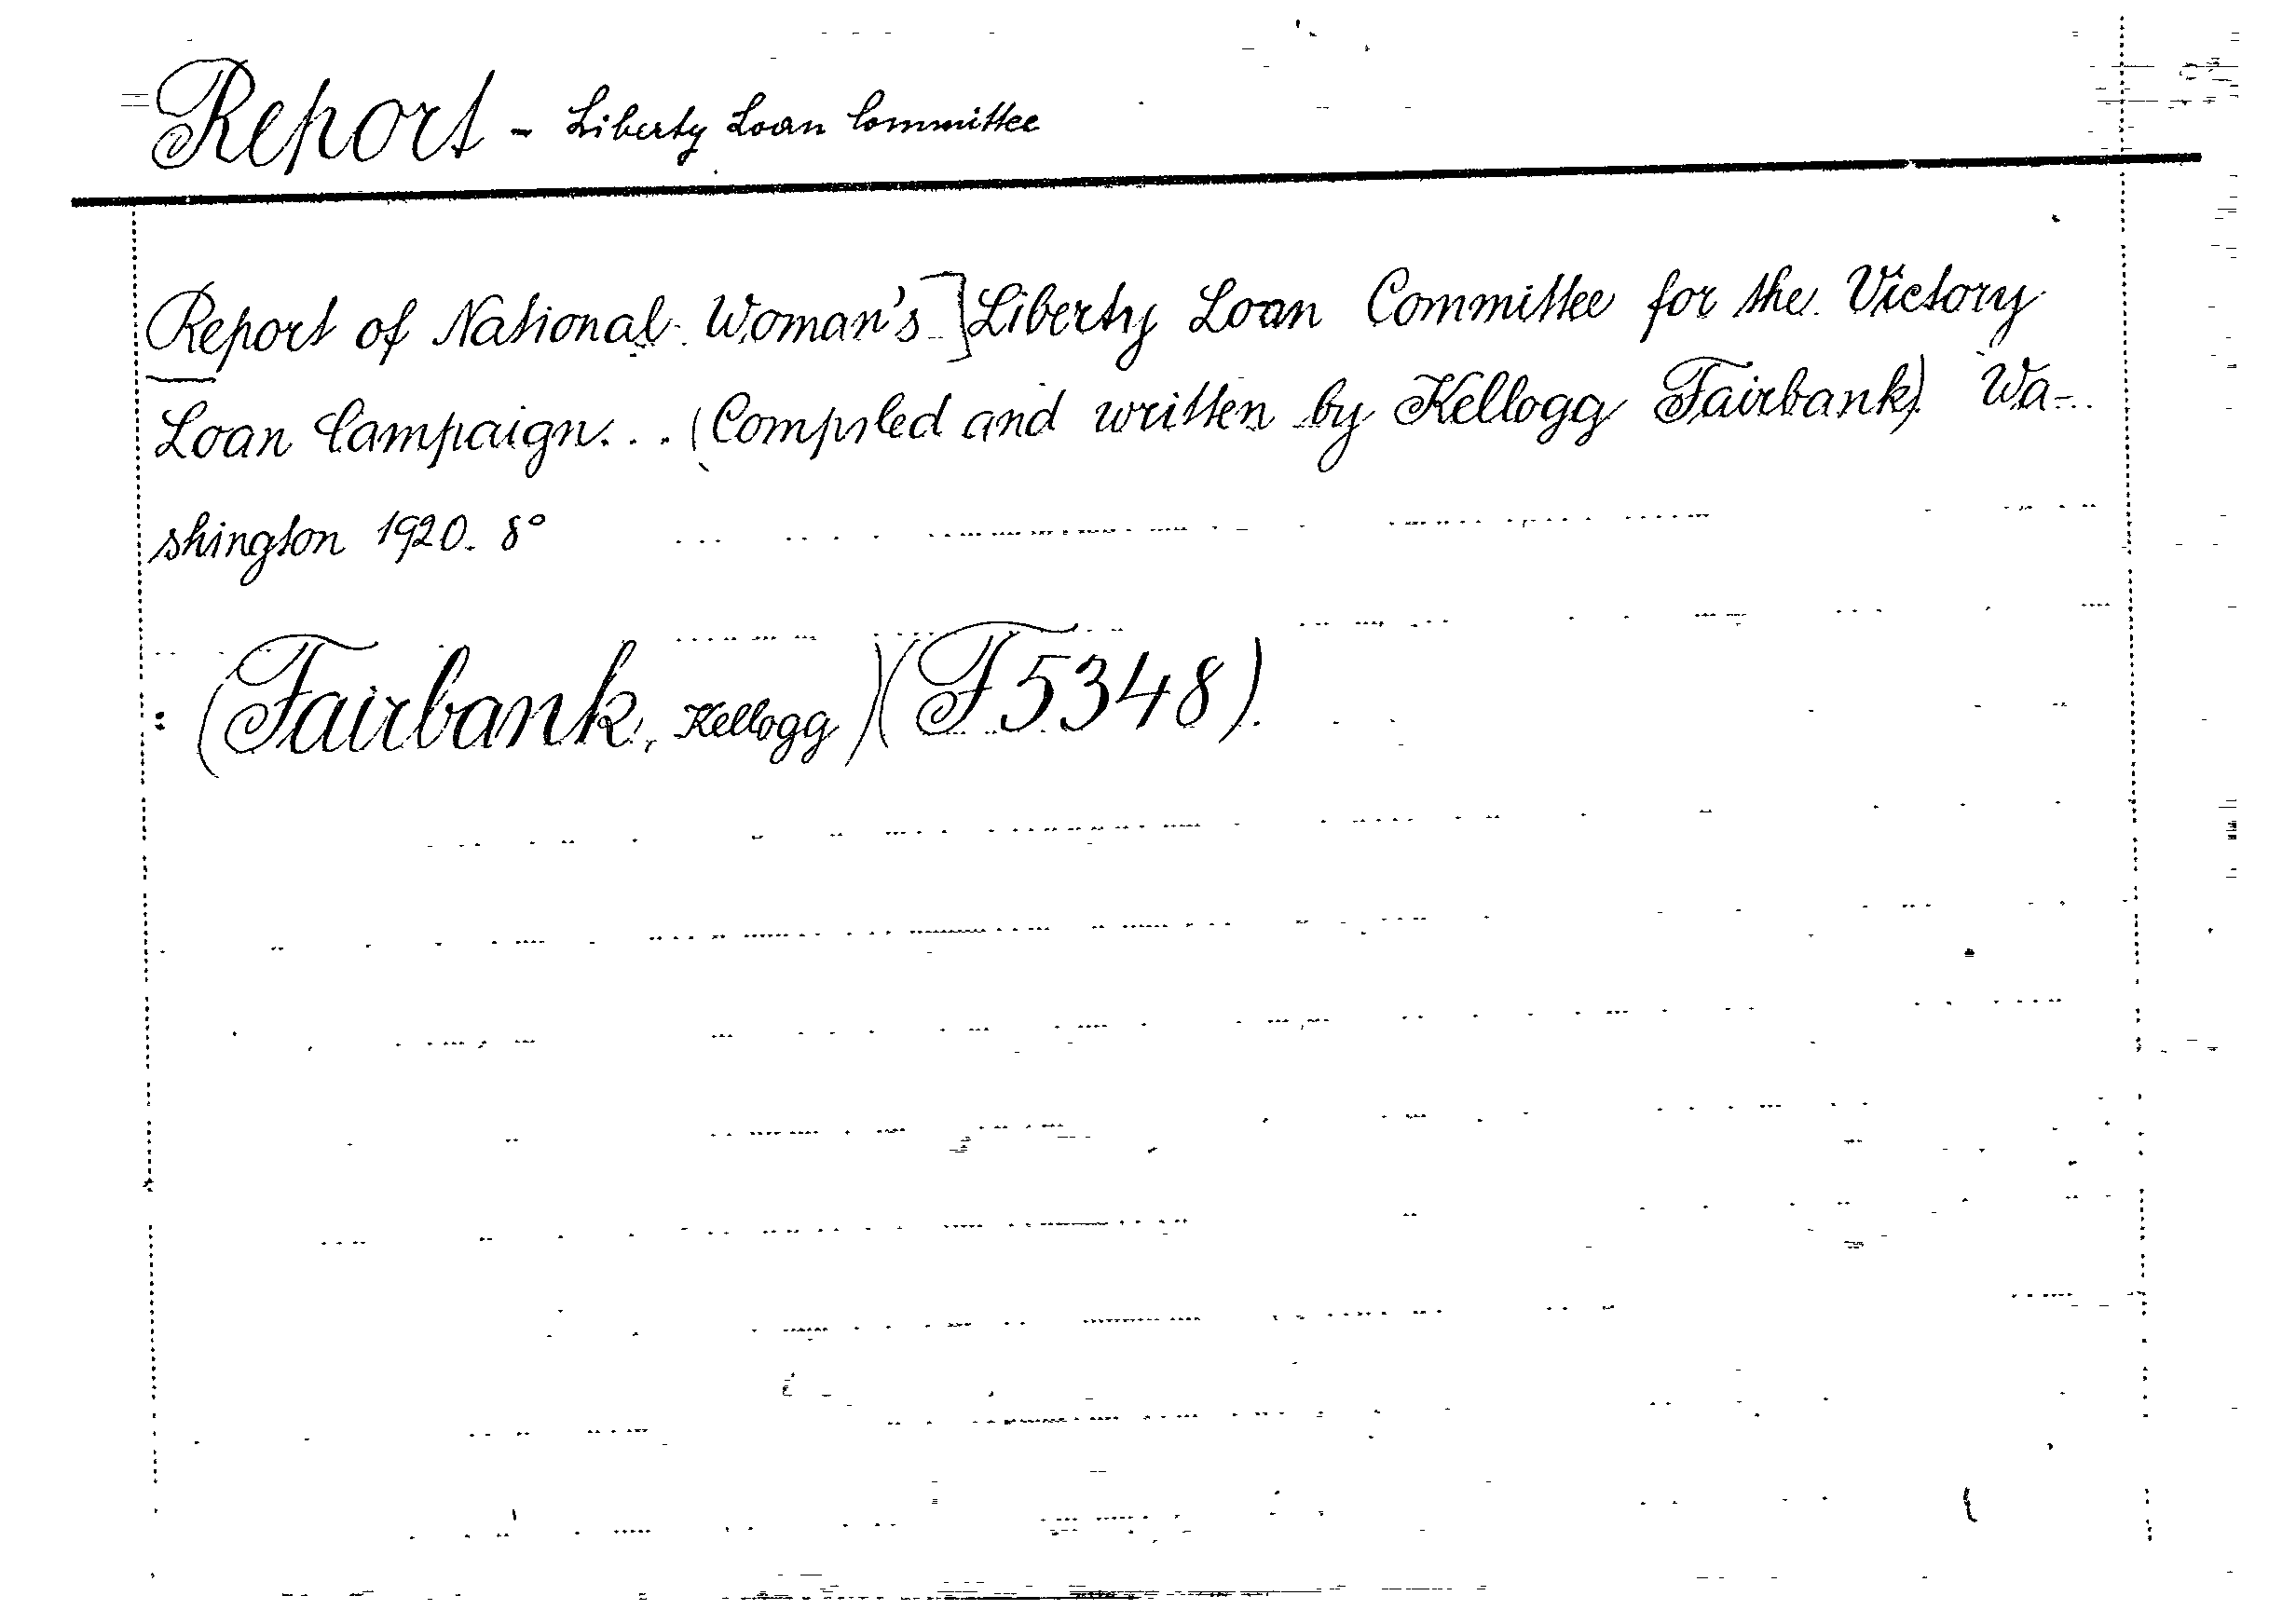 Report - Liberty Loan Committee
Report of National Woman's] Liberty Loan Committee for the Victory
Loan Campaign... (Compiled and written by Kellogg Fairbank) Wa-
shington 1920. 8°
: (Fairbank, Kellogg) (F 5348).